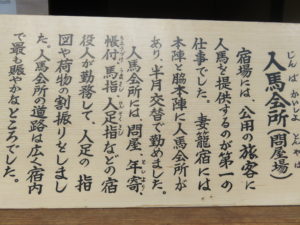 じんばかいしょ といやば
人馬会所(問屋場)
宿場には、公用の旅客に
人馬を提供するのが第一の
仕事でした。妻籠宿には
本陣と脇本陣に人馬会所が
あり、半月交替で勤めました。
人馬会所には、問屋、年寄、
帳付、馬指、人足指などの宿
役人が勤務して、人足の指
図や荷物の割振りをしまし
た。人馬会所の道路は広く宿内
で最も賑やかなところでした。